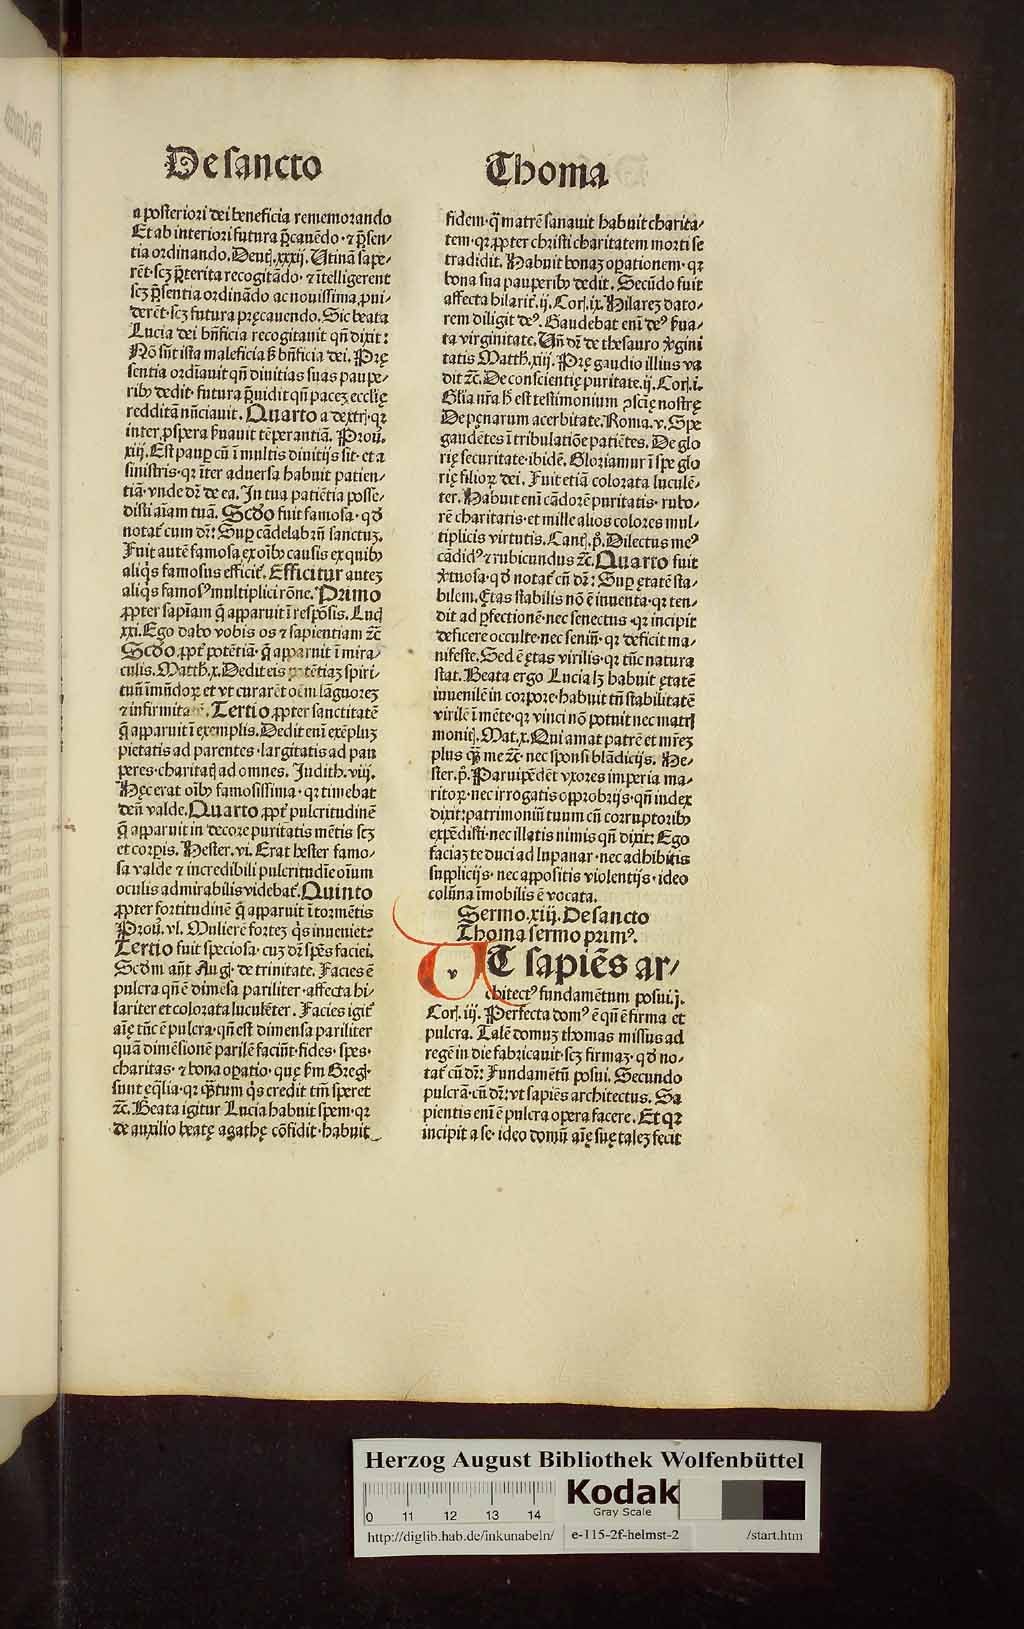 De sancto
Thoma
a posteriori dei beneficia rememorando
Et ab interiori futura p̄cauēdo· ⁊ p̄sen⸗
tia ordinando. Deut̄. xxxij. Utinā sape⸗
rēt· scꝫ p̄terita recogitādo· ⁊ ītelligerent
scꝫ p̄sentia ordinādo ac nouissima ꝓui⸗
derēt· scꝫ futura pręcauendo. Sic beata
Lucia dei bn̄ficia recogitauit qn̄ dixit:
Nō sūt ista maleficia ſꝫ bn̄ficia dei. Prę
sentia ordīauit qn̄ diuitias suas paupe⸗
ribꝰ dedit· futura p̄uidit qn̄ paceꝫ ecclīę
redditā nūciauit. Quarto a dextrꝭ· qꝛ
inter ꝓspera ẜuauit tēperantiā. Prou̅.
xiij. Est pauꝑ cū ī multis diuitijs sit· et a
sinistris· qꝛ īter aduersa habuit patien⸗
tiā· vnde dꝛ̄ de ea. In tua patiētia posse⸗
disti aīam tuā. Scd̄o fuit famosa· qd̄
notat̄ cum dꝛ̄: Suꝑ cādelabꝛū sanctuꝫ.
Fuit autē famosa ex oībꝰ causis ex quibꝰ
aliq̇s famosus efficit̄. Efficitur auteꝫ
aliq̇s famosꝰ multiplici rōne. Primo
ꝓpter sapīam q̄ apparuit ī respōsis. Luc̄
xxi. Ego dabo vobis os ⁊ sapientiam ⁊c̄
Scd̄o ꝓpt̄ potētiā· q̄ apparuit ī mira⸗
culis. Matth. x. Dedit eis potētiaꝫ spiri⸗
tuū īmūdoꝝ et vt curarēt oēm lāguoreꝫ
⁊ infirmita ē. Tertio ꝓpter sanctitatē
q̄ apparuit ī exemplis. Dedit enī exēpluꝫ
pietatis ad parentes· largitatis ad pau
peres· charitatꝭ ad omnes. Judith. viij.
Hęc erat oībꝰ famosissima· qꝛ timebat
deū valde. Quarto ꝓpt̄ pulcritudinē
q̄ apparuit in decore puritatis mētis scꝫ
et corꝑis. Hester. vi. Erat hester famo⸗
sa valde ⁊ incredibili pulcritudīe oīum
oculis admirabilis videbat̄. Quinto
ꝓpter fortitudinē q̄ apparuit ī tormētis
Prou̅. vl. Mulierē forteꝫ q̇s inueniet:
Tertio fuit speciosa· cuꝫ dꝛ̄ spēs faciei.
Scd̄m aūt Augꝭ. de trinitate. Facies ē
pulcra qn̄ ē dimēsa pariliter· affecta hi⸗
lariter et colorata luculēter. Facies igit̄
aīę tūc ē pulcra· qn̄ est dimensa pariliter
quā dimēsionē parilē faciūt· fides· spes·
charitas· ⁊ bona oꝑatio· quę ẜm Gregꝭ.
sunt eq̄lia· qꝛ q̄ꝫtum q̇s credit tm̄ speret
⁊c̄. Beata igitur Lucia habuit spem· qꝛ
de auxilio beatę agathę cōfidit· habuit
fidem· q̄ matrē sanauit habuit charita⸗
tem· qꝛ ꝓpter christi charitatem morti se
tradidit. Habuit bonaꝫ oꝑationem· qꝛ
bona sua pauperibꝰ dedit. Secūdo fuit
affecta hilarit̄. ij. Corꝭ. ix. Hilareꝫ dato⸗
rem diligit deꝰ. Gaudebat enī deꝰ ẜua⸗
ta virginitate. Un̄ dꝛ̄ de thesauro v̇gini
tatis Matth. xiij. Prę gaudio illius va
dit ⁊c̄. De conscientię puritate. ij. Corꝭ. i.
Glīa nr̄a hꝭ est testimonium ꝯsciē nostrę
De pęnarum acerbitate. Roma. v. Spe
gaudētes ī tribulatiōe patiētes. De glo
rię securitate· ibidē. Gloriamur ī spe glo
rię filioꝝ dei. Fuit etiā colorata luculē⸗
ter. Habuit enī cādorē puritatis· rubo⸗
rē charitatis· et mille alios colores mul⸗
tiplicis virtutis. Cantꝭ. pͦ. Dilectus meꝰ
cādidꝰ ⁊ rubicundus ⁊c̄. Quarto fuit
v̇tuosa· qd̄ notat̄ cū dꝛ̄: Suꝑ ętatē sta⸗
bilem. Ętas stabilis nō ē iuuenta· qꝛ ten⸗
dit ad ꝑfectionē· nec senectus· qꝛ incipit
deficere occulte· nec seniū· qꝛ deficit ma⸗
nifeste. Sed ē ętas virilis· qꝛ tūc natura
stat. Beata ergo Lucia lꝫ habuit ętatē
iuuenilē in corpore· habuit tn̄ stabilitatē
virilē ī mēte· qꝛ vinci nō potuit nec matrꝭ
monitꝭ. Mat. x. Qui amat patrē et mr̄eꝫ
plus q̄ꝫ me ⁊c̄· nec sponsi blādicijs. He⸗
ster. pͦ. Paruipēdēt vxores imperia ma⸗
ritoꝝ· nec irrogatis opprobrijs· qn̄ iudex
dixit: patrimoniū tuum cū corruptoribꝰ
expēdisti· nec illatis nimis qn̄ dixit: Ego
faciaꝫ te duci ad lupanar· nec adhibitis
supplicijs· nec appositis violentijs· ideo
colūna īmobilis ē vocata.
Sermo. xiij. De sancto
Thoma sermo primꝰ.
vT sapiēs ar⸗
chitectꝰ fundamētum posui. j.
Corꝭ. iij. Perfecta domꝰ ē qn̄ ē firma et
pulcra. Talē domuꝫ thomas missus ad
regē in die fabricauit· scꝫ firmaꝫ· qd̄ no⸗
tat̄ cū dꝛ̄: Fundamētū posui. Secundo
pulcrā· cū dꝛ̄: vt sapiēs architectus. Sa
pientis enī ē pulcra opera facere. Et qꝛ
incipit a se· ideo domū aīę suę taleꝫ fecit
Herzog August Bibliothek Wolfenbüttel
Kodak
Gray Scale
0 11 12 13 14
http://diglib.hab.de/inkunabeln/ e-115-2f-helmst-2 /start.htm